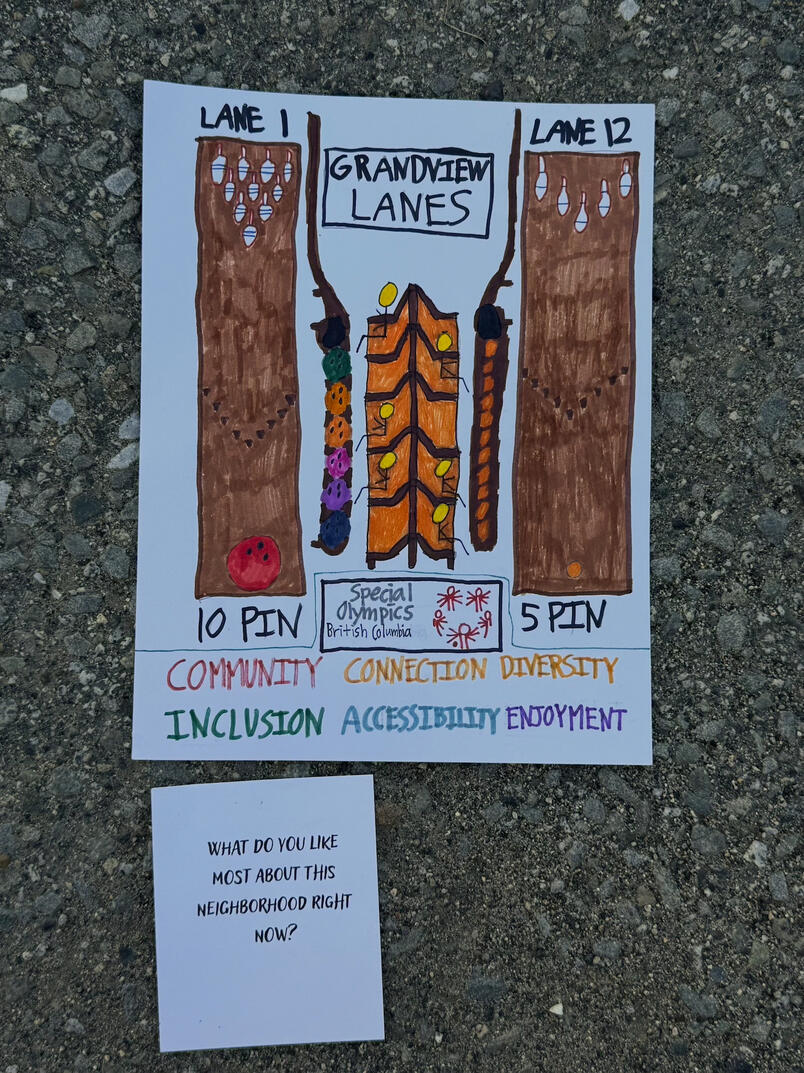 LANE 1
GRANDVIEW
LANES
LANE 12
10 PIN
Special
Olympics
British Columbia
5 PIN
COMMUNITY CONNECTION DIVERSITY
INCLUSION ACCESSIBILITY ENJOYMENT
WHAT DO YOU LIKE
MOST ABOUT THIS
NEIGHBORHOOD RIGHT
NOW?